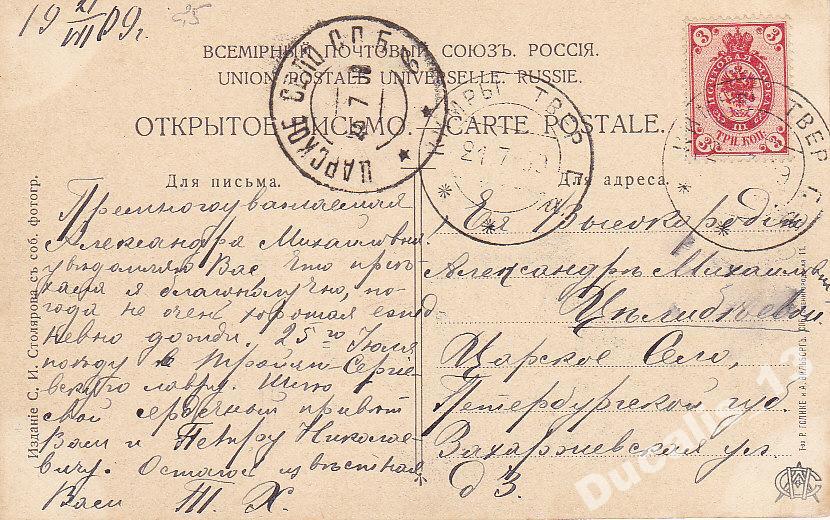 19 21/VII 09г.
ВСЕМІРНЫЙ ПОЧТОВЫЙ СОЮЗЪ. РОССІЯ.
UNION POSTALE UNIVERSELLE. RUSSIE.
ОТКРЫТОЕ ПИСЬМО. — CARTE POSTALE.
ЦАРСКОЕ СЕЛО С.П.Б.
7
КИМРЫ ТВЕР. Г.
21 7
3 3
ПОЧТОВАЯ МАРКА
ТРИ КОП.
3 3
ТВЕР. Г.
Для письма.
Премногоуважаемая
Александра Михайловна
уведомляю Вас что прие-
хала я благополучно, по-
года не очень хорошая ежед
невно дожди. 25го Июля
поеду в Тройцы-Сергіе-
вскую лавру. Шлю
свой сердечный привет
Вам и Петру Николае-
вичу. Остаюсь извѣстная
Вам Т. Х.
Для адреса.
Ея Высокородію
Александрѣ Михайловнѣ
Цѣлибѣевой
Царское Село,
Петербургской губ.
Захаржевская ул.
д 3.
Изданіе С. И. Столярова съ соб. фотогр.
Тов. Р. ГОЛИКЕ и А. ВИЛЬБОРГЪ.
Ducalis_13